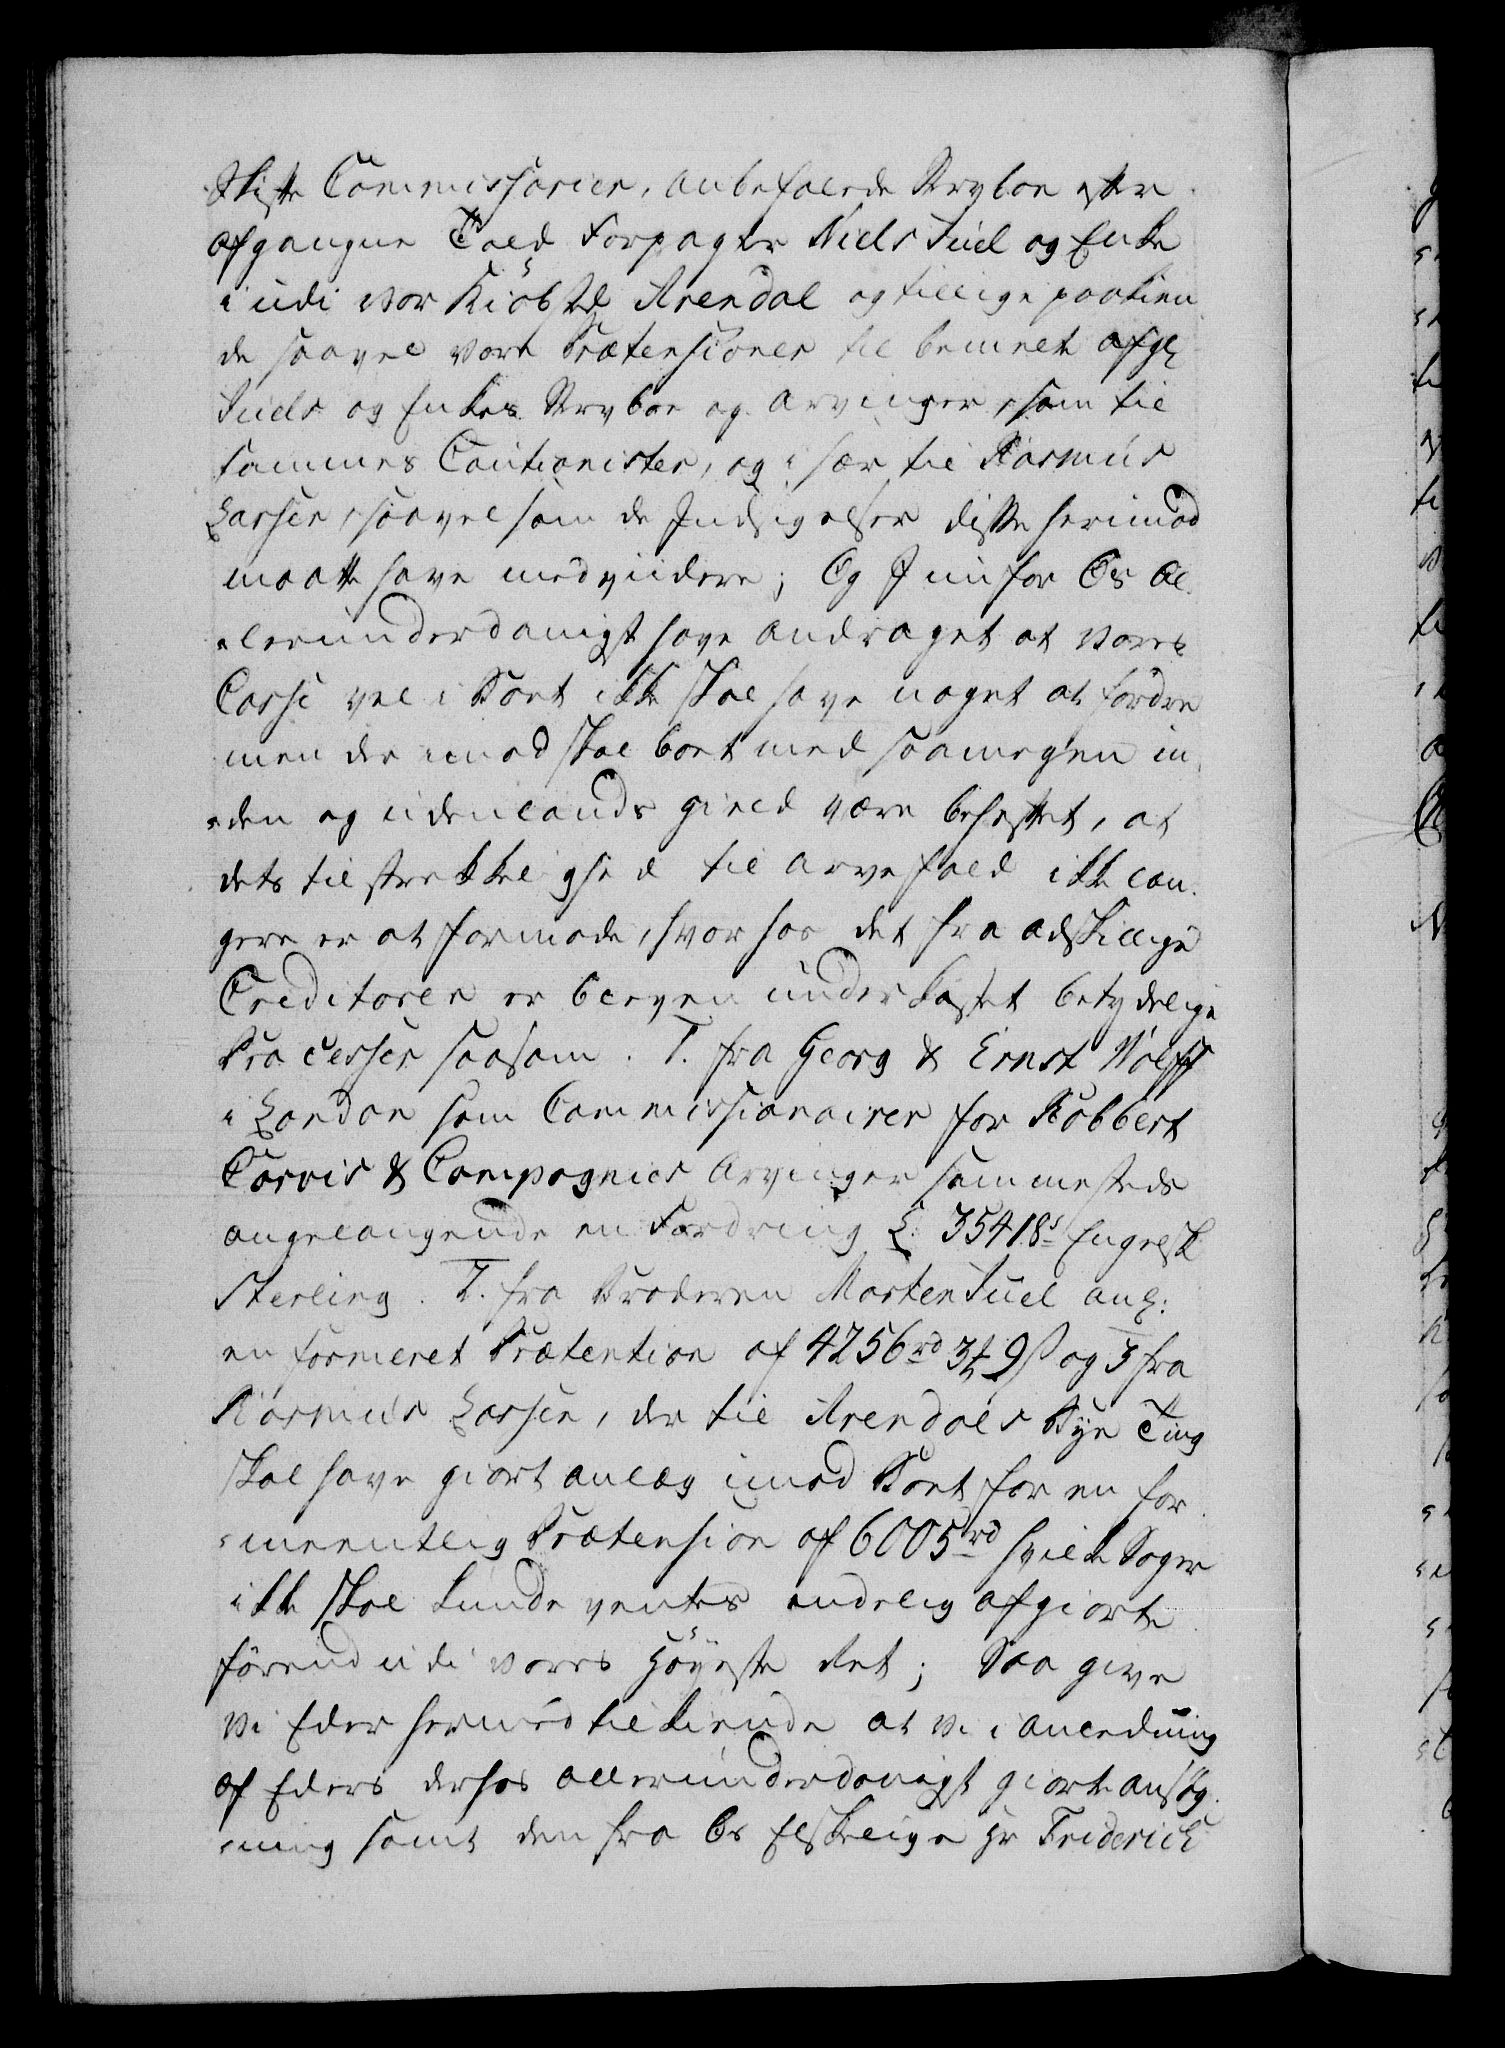 Skifte Commissarier, anbefalede Stervboe efter
afgangne Told Forpagter Niels Juel og Enke
i udi vor Kiöbsted Arendal og tillige paakien
de saavel vore Prætensioner til bemelte afg:
Juels og Enkes Stervboe og Arvinger, som til
sammes Cautionister, og i sær til Rasmus
Lassen, saavel som de Indsigelser disse herimod
maatte have med viidere; Og I nu for Os al
lerunderdanigst have andraget at vores
Casse vel i Boet ikke skal have noget at fordre
men derimod skal boet med saamegen in
den og udenlands gield være behæftet, at
dets tilstrekkelighed til arvefald ikke lan
gere er at formode, hvorhos det fra adskillige
Creditorer er bleven underkastet betydelige
Processer saasom. 1. fra Georg & Ernst Wolff
i London som Commissionairer for Robbert
Corvis & Compagnies Arvinger sammesteds
angelangende en Fordring £: 354 18s Engelsk
Sterling. 2. fra Broderen Morten Juel anl:
en formeret Prætention af 4256 rd 3 ₰ 9 ß og 3 fra
Rasmus Lassen, der til Arendals Bye Ting
skal have giort anlæg imod Boet for en for
meentlig Prætension af 6005 rd hvilke Sager
ikke skal kunde ventes endelig afgiorte
förend udi vores Höyeste Ret; Saa give
vi Eder hermed tilkiende at vi i anledning
af Eders derhos allerunderdanigst giorte ansøg
ning samt den fra Os Elskelige Hr Friderich